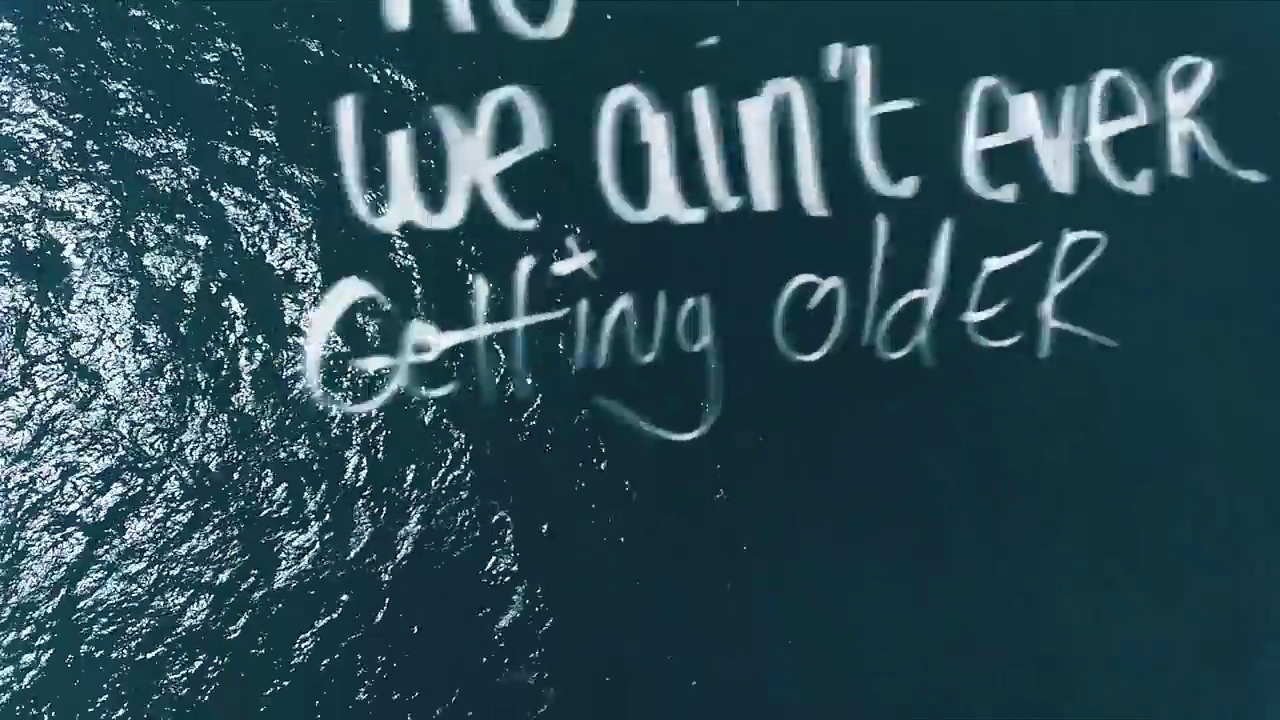 we ain't eveR
Getting oldER